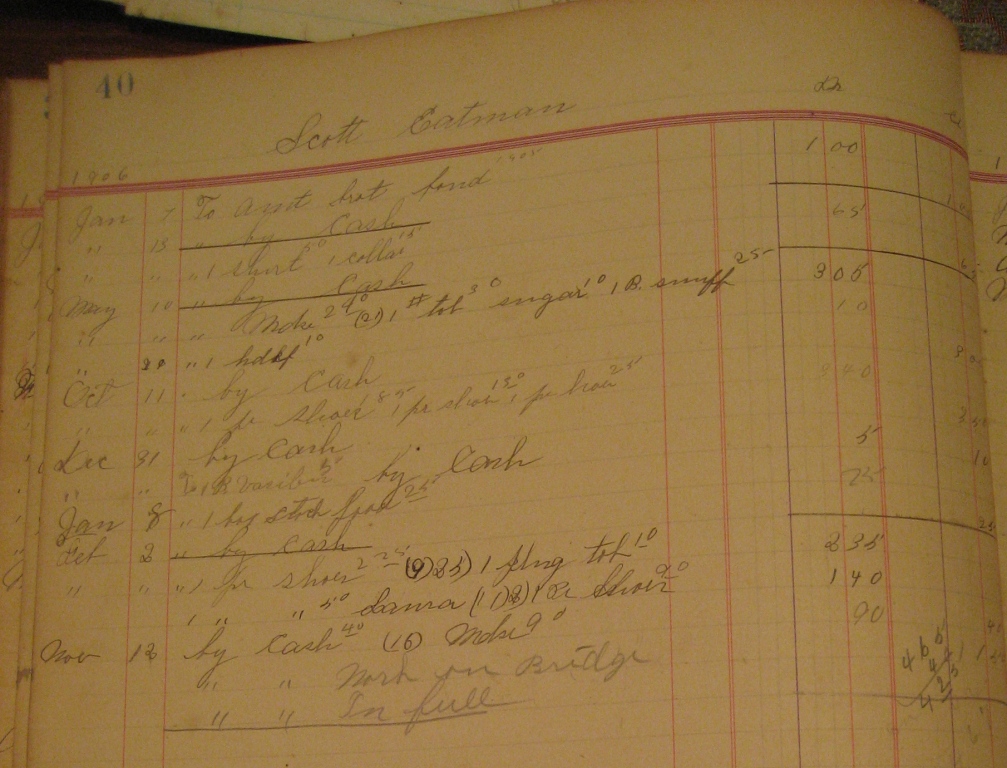 40
Dr
Scott Eatman
1906
Jan 7 To amt brot forwd 1905 1 00
" 13 " by Cash
" " " 1 shirt 50 1 collar 15 65
May 10 " by Cash
" " " Mdse 2 40 (21) 1 # tob 30 sugar 10 1 B. snuff 25 3 05
" 29 " 1 hdkf 10 10
Oct 11 " by Cash
" " " 1 pr shoes 1 pr shoes 1 pr hose 25
Dec 31 by Cash 5
" " by Cash 25
Jan 8 " 1 box stock food 25
Oct 2 " by Cash
" " " 1 pr shoes 2 25 1 plug tob 10 2 35
" " 50 Laura 1 Pr Shoes 90 1 40
Nov 12 by Cash 40 (16) Mdse 90 90
" " Work on Bridge
" " In full
4 65
4 25